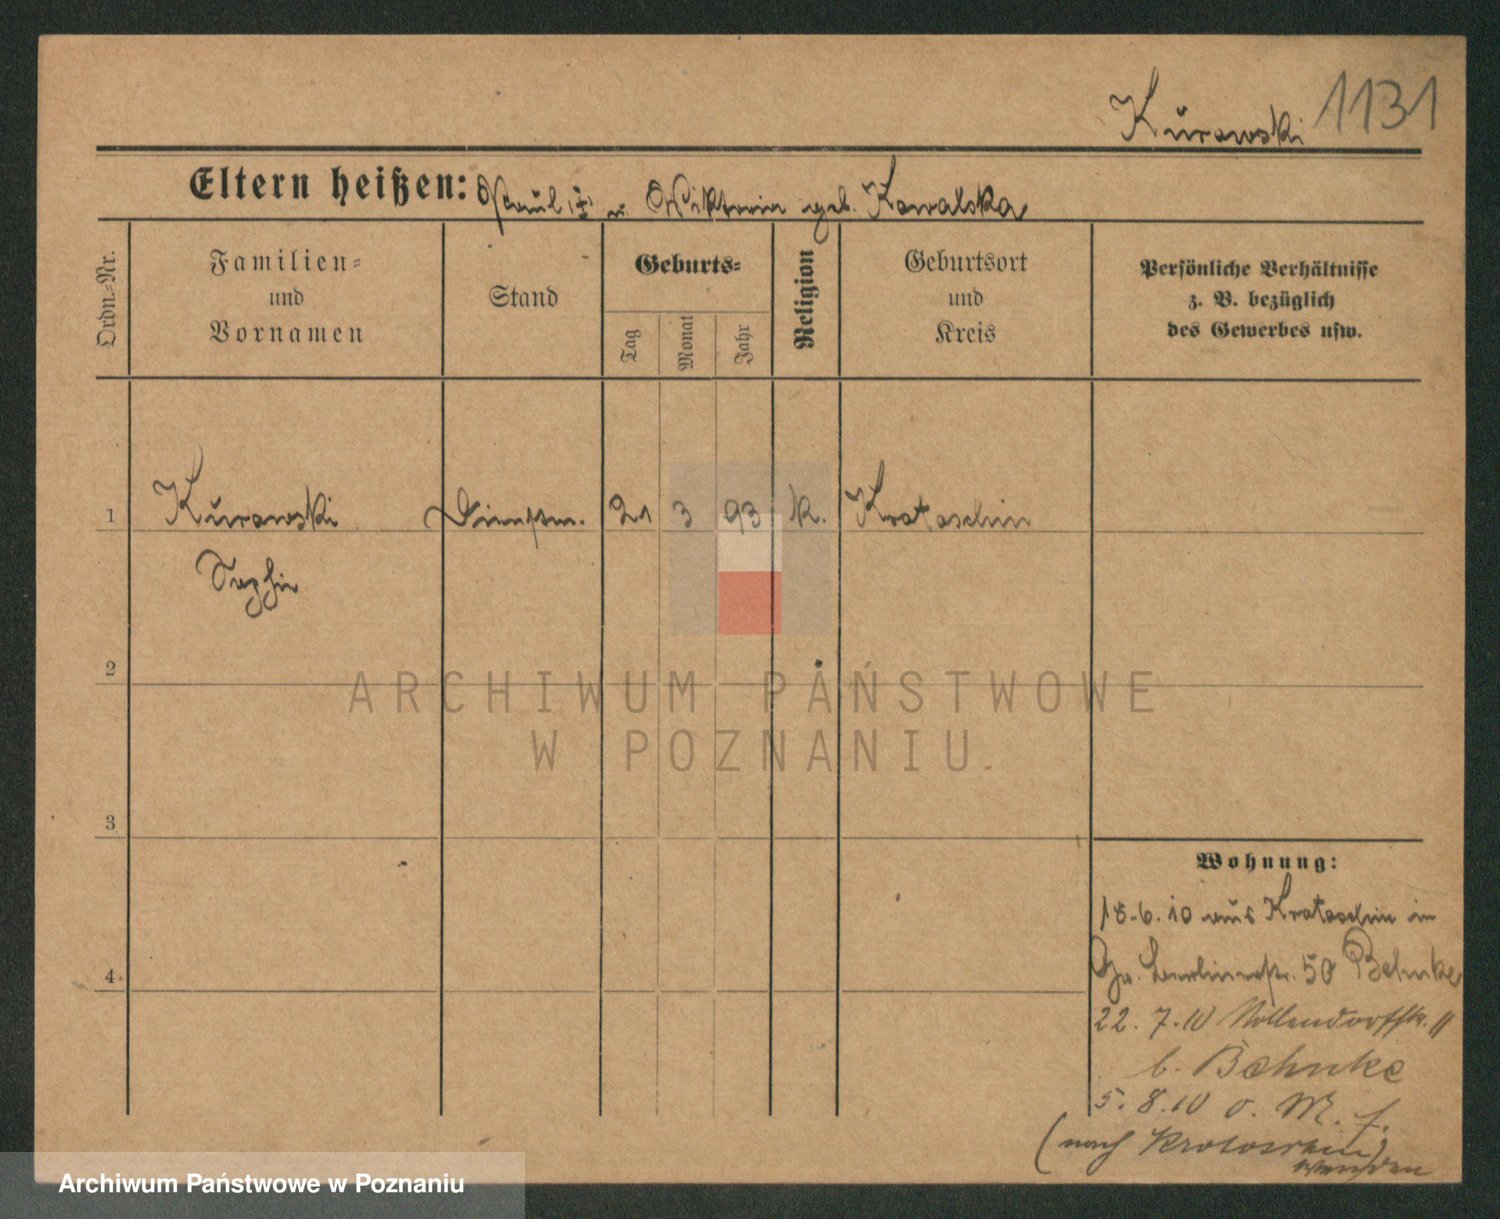 Kurowski 1131
Eltern heißen: Paul (†) u. Wiktoria geb. Kowalska
Ordn.-Nr.
Familien-
und
Vornamen
Stand
Geburts-
Tag
Monat
Jahr
Religion
Geburtsort
und
Kreis
Persönliche Verhältnisse
z. B. bezüglich
des Gewerbes usw.
1 Kurowski Dienstm. 21 3 93 k. Krotoschin
Sophie
2
ARCHIWUM PAŃSTWOWE
W POZNANIU
3
Wohnung:
18.6.10 aus Krotoschin in
Gr. Berlinerstr. 50 Behnke
4
22. 7. 10 Nollendorffstr. 11
b. Behnke
5. 8. 10 o. M. f.
(nach Krotoschin)
Archiwum Państwowe w Poznaniu